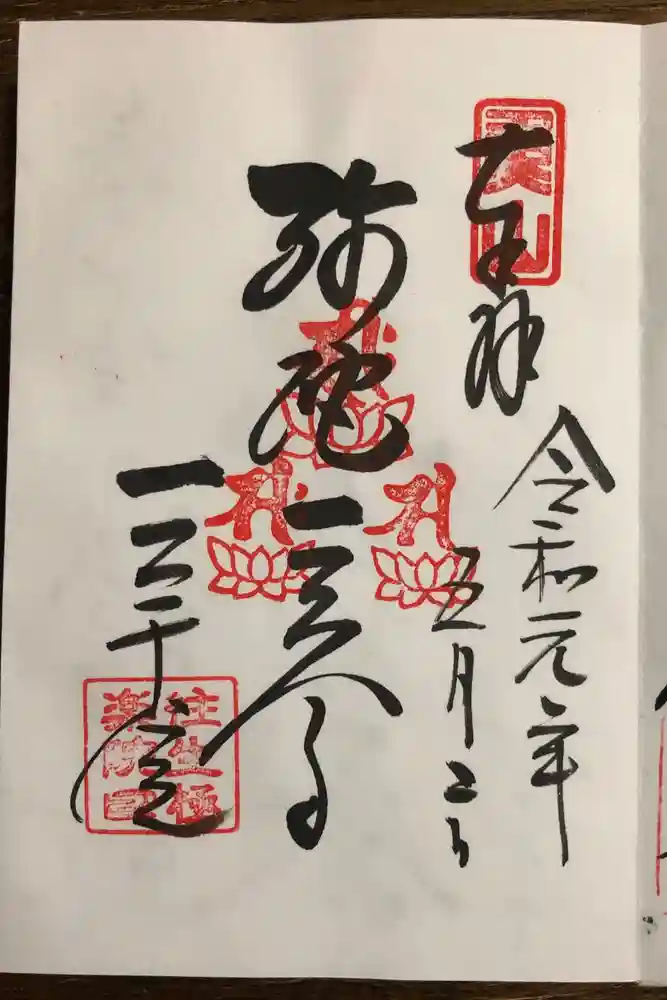 魚山
奉拝
令和元年
五月二日
弥陀三尊
三千院
往生極
楽院印